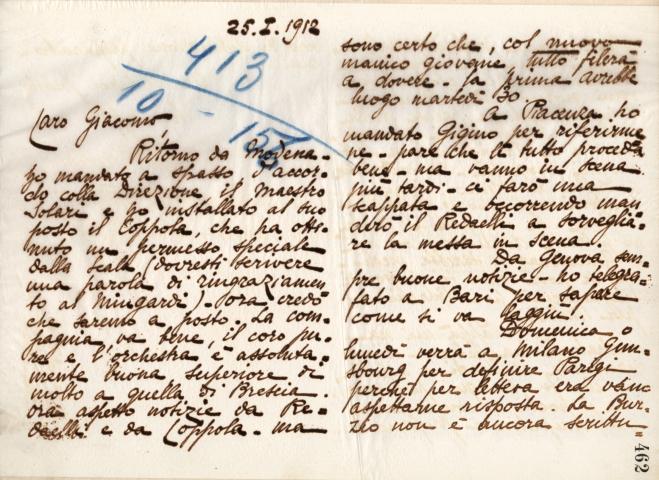 25.I.1912
413
10 - 153
Caro Giacomo,
Ritorno da Modena -
ho mandato a spasso d'accor=
do colla Direzione il maestro
Solari e ho installato al suo
posto il Coppola, che ha otte=
nuto un permesso speciale
dalla Scala (dovresti scrivere
una parola di ringraziamen
to al Mingardi) - ora credo
che saremo a posto. La com=
pagnia va bene, il coro pu=
re e l'orchestra è assoluta=
mente buona superiore di
molto a quella di Brescia.
Ora aspetto notizie da Re=
daelli e da Coppola - ma
sono certo che, col nuovo
manico giovane, tutto filerà
a dovere - la prima avrebbe
luogo martedì 30.
A Piacenza ho
mandato Gigino per riferirme
ne - pare che là tutto proceda
bene - ma vanno in scena
più tardi - ci farò una
scappata e occorrendo man
derò il Redaelli a sorveglia=
re la messa in scena.
Da Genova sem=
pre buone notizie - ho telegra=
fato a Bari per sapere
come si va laggiù.
Domenica o
lunedì verrà a Milano Gun=
sbourg per definire Parigi
perché per lettera era vano
aspettarne risposta. La Bur=
zio non è ancora scrittu=
462